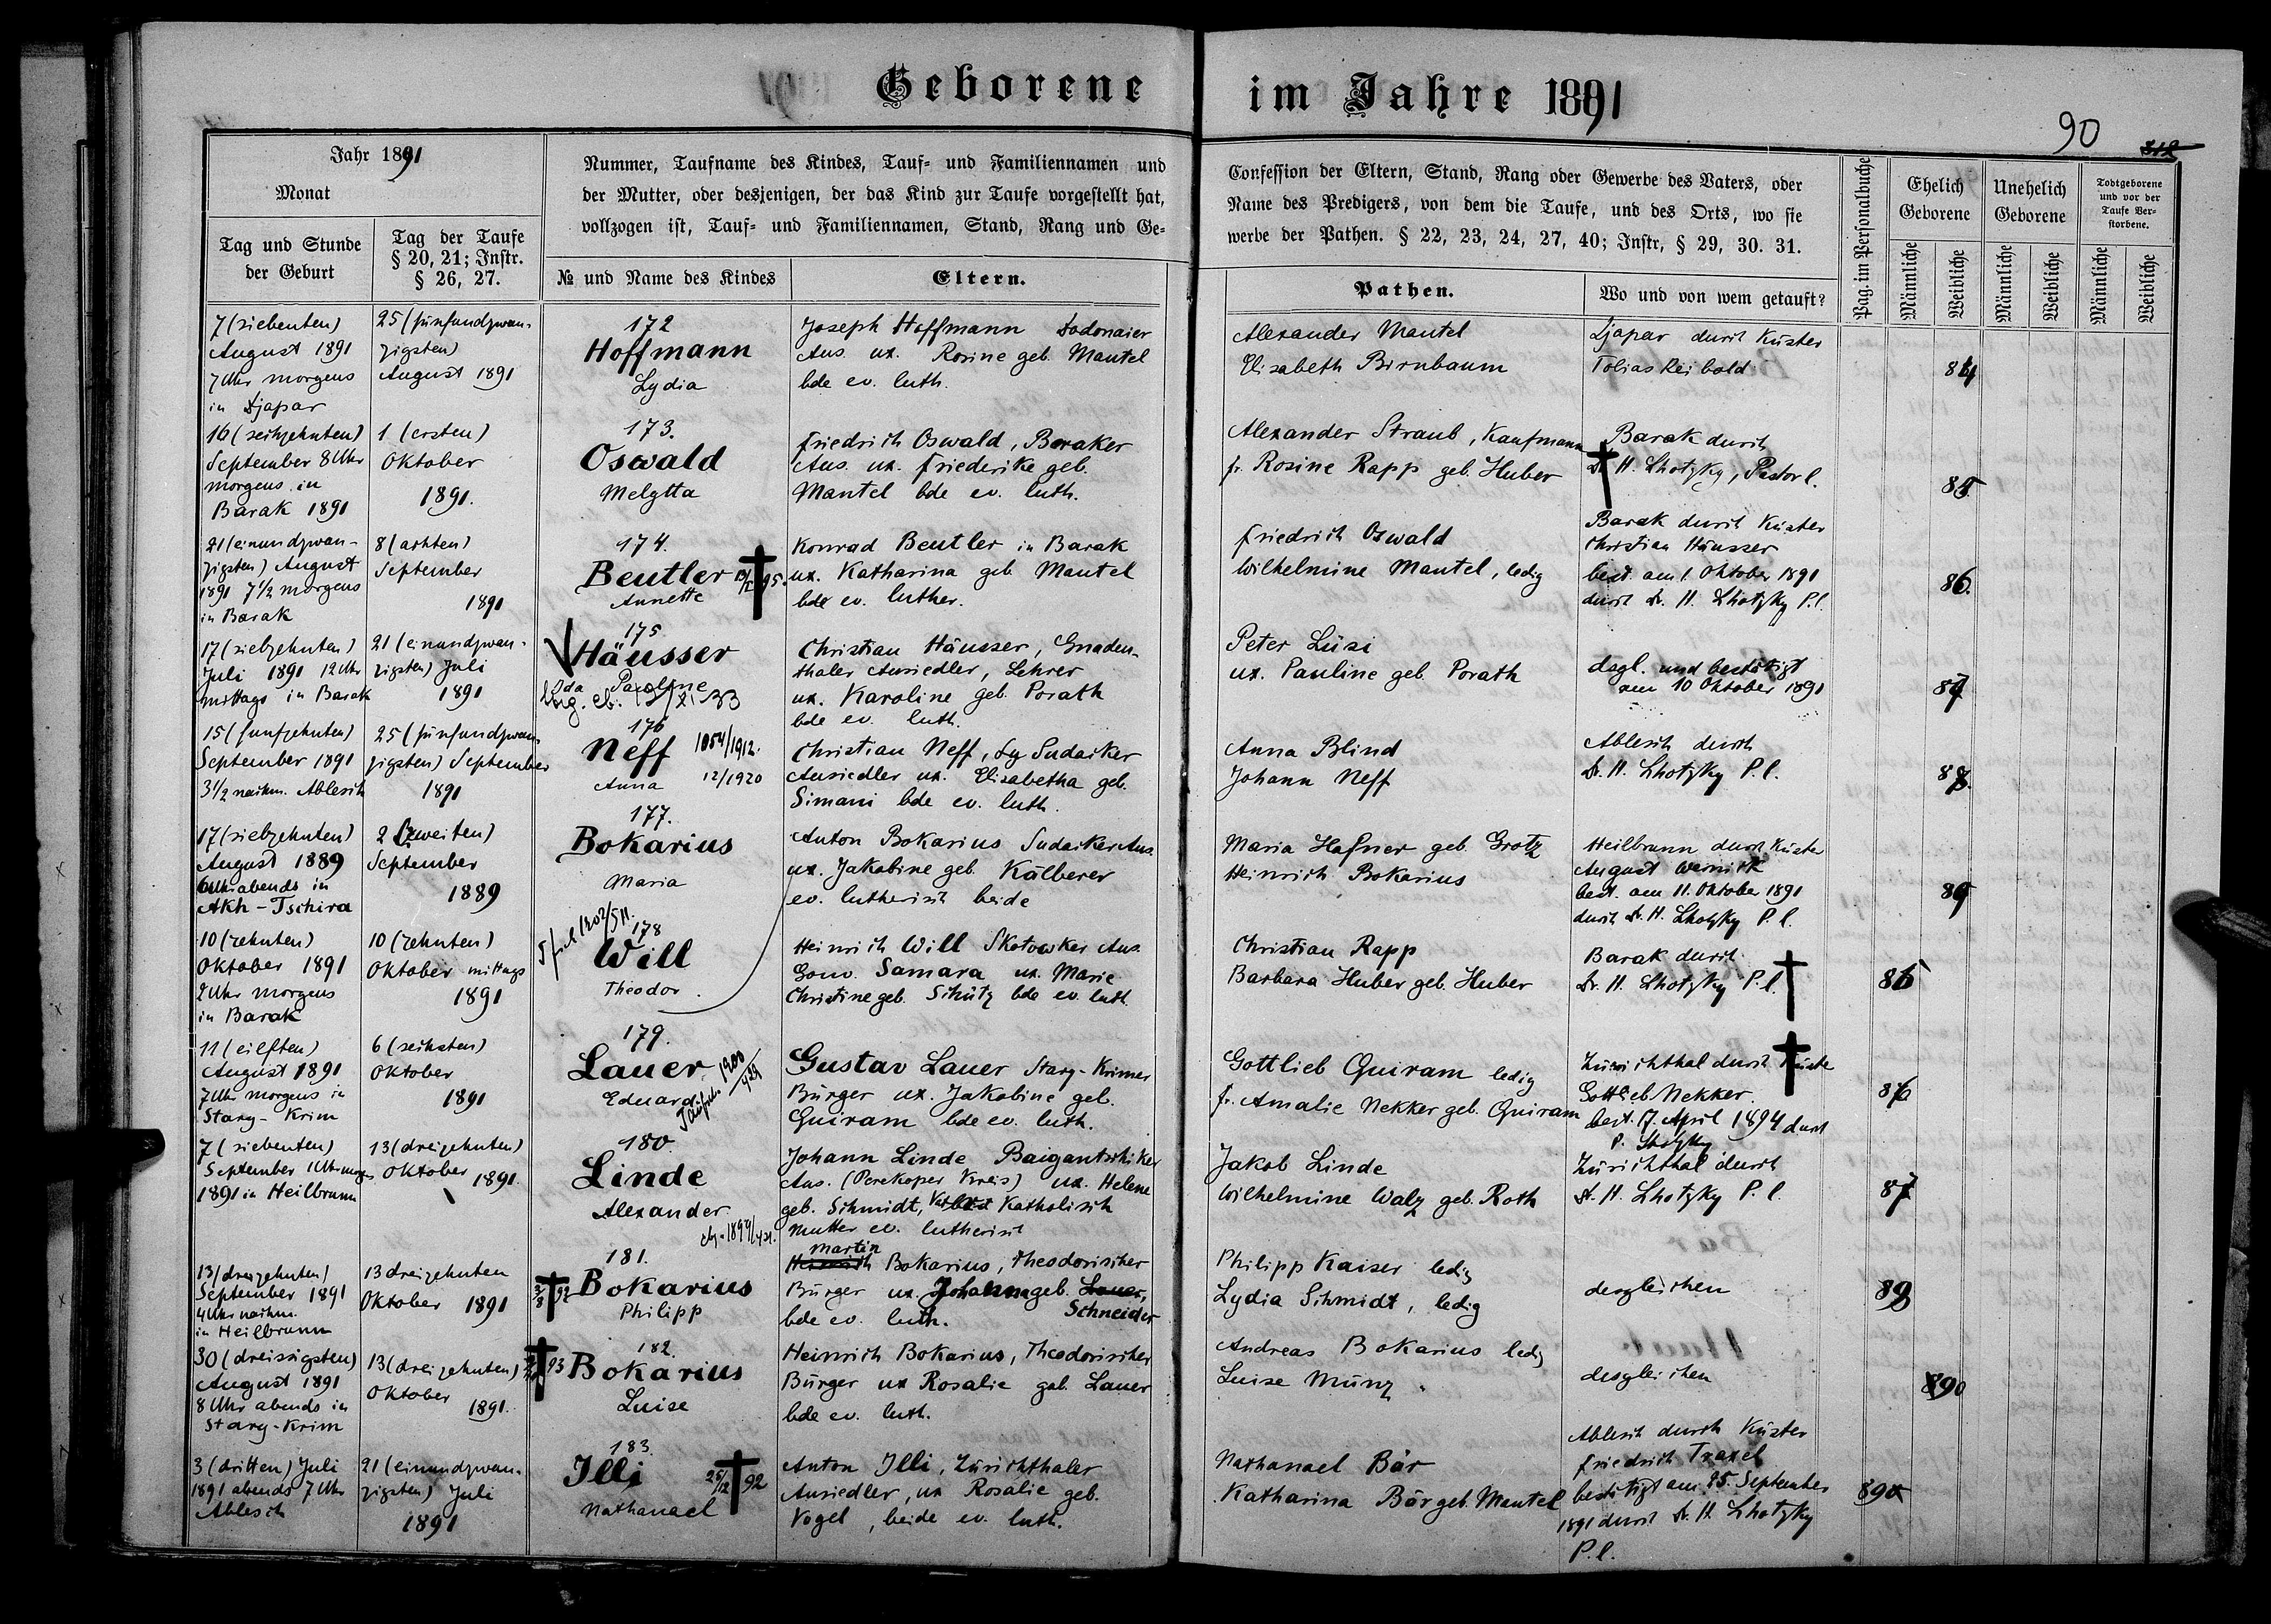 Geborene im Jahre 1891
90
312
Jahr 1891
Monat
Tag und Stunde
der Geburt
Tag der Taufe
§ 20, 21; Instr.
§ 26, 27.
Nummer, Taufname des Kindes, Tauf- und Familiennamen und
der Mutter, oder desjenigen, der das Kind zur Taufe vorgestellt hat,
vollzogen ist, Tauf- und Familiennamen, Stand, Rang und Ge-
№ und Name des Kindes
Eltern.
Confession der Eltern, Stand, Rang oder Gewerbe des Vaters, oder
Name des Predigers, von dem die Taufe, und des Orts, wo sie
werbe der Pathen. § 22, 23, 24, 27, 40; Instr, § 29, 30. 31.
Pathen.
Wo und von wem getauft?
Pag. im Personalbuche
Ehelich
Geborene
Unehelich
Geborene
Todtgeborene
und vor der
Taufe Ver-
storbene.
Männliche
Weibliche
Männliche
Weibliche
Männliche
Weibliche
7 (siebenten)
August 1891
7 Uhr morgens
in Djapar
25 (fünfundzwan-
zigsten)
August 1891
172
Hoffmann
Lydia
Joseph Hoffmann Dodonaier
Ans. ux. Rosine geb. Mantel
bde ev. luth.
Alexander Mantel
Elisabeth Birnbaum
Djapar durch Küster
Tobias Reibold
84
16 (sechzehnten)
September 8 Uhr
morgens in
Barak 1891
1 (ersten)
Oktober
1891.
173.
Oswald
Melytta
Friedrich Oswald, Baraker
Ans. ux. Friederike geb.
Mantel bde ev. luth.
Alexander Straub, Kaufmann
fr. Rosine Rapp geb. Huber
Barak durch
Dr. H. Lhotzky, Pastor l.
85.
21 (einundzwan-
zigsten) August
1891 7 1/2 morgens
in Barak
8 (achten)
September
1891
174.
Beutler
95.
Annette
Konrad Beutler in Barak
ux. Katharina geb Mantel
bde ev. luther.
Friedrich Oswald
Wilhelmine Mantel, ledig
Barak durch Küster
Christian Häusser
best. am 1. Oktober 1891
durch Dr. H. Lhotzky P.l.
86.
17 (siebzehnten)
Juli 1891 12 Uhr
mittags in Barak
21 (einundzwan-
zigsten) Juli
1891
175
Häusser
Ida Pauline
Christian Häusser, Gnaden-
thaler Ansiedler, Lehrer
ux. Karoline geb. Porath
bde ev. luth.
Peter Lüsi
ux. Pauline geb. Porath
dsgl. und bestätigt
am 10 Oktober 1891
87
15 (funfzehnten)
September 1891
3 1/2 nachm. Ablesch
25 (fünfundzwan-
zigsten) September
1891
176
Neff 1054/1912.
Anna 12/1920
Christian Neff, Sudaker
Ansiedler ux. Elisabetha geb.
Simani bde ev. luth.
Anna Blind
Johann Neff
Ablesch durch
Dr. H. Lhotzky P. l.
88.
17 (siebzehnten)
August 1889
6 Uhr abends in
Akh-Tschira
2 (zweiten)
September
1889
177.
Bokarius
Maria
Anton Bokarius Sudaker Ans.
ux. Jakobine geb. Kälberer
ev. lutherisch beide
Maria Hafner geb. Grotz
Heinrich Bokarius
Heilbrunn durch Küster
August Wernick
best. am 11. Oktober 1891
durch Dr. H. Lhotzky P. l.
89
10 (zehnten)
Oktober 1891
2 Uhr morgens
in Barak
10 (zehnten)
Oktober mittags
1891
178
Will
Theodor
Heinrich Will Skotowker Ans.
Gouv. Samara ux. Marie
Christine geb. Schütz bde ev. luth.
Christian Rapp
Barbara Huber geb. Huber
Barak durch
Dr. H. Lhotzky P. l.
85
11 (eilften)
August 1891
7 Uhr morgens in
Stary-Krim
6 (sechsten)
Oktober
1891
179.
Lauer
Eduard
Gustav Lauer Stary-Krimer
Bürger ux. Jakobine geb.
Quiram bde ev. luth.
Gottlieb Quiram ledig
fr. Amalie Nekker geb. Quiram
Zürichthal durch Küster
Gottlieb Nekker.
best. 17. April 1894 durch
P. Lhotzky
86
7 (siebenten)
September 1 Uhr morgs
1891 in Heilbrunn
13 (dreizehnten)
Oktober 1891.
180.
Linde
Alexander
Johann Linde Baigantschiker
Ans. (Perekoper Kreis) ux. Helene
geb. Schmidt, Vater Katholisch
Mutter ev. lutherisch
Jakob Linde
Wilhelmine Walz geb. Roth
Zürichthal durch
Dr. H. Lhotzky P. l.
87
13 (dreizehnten)
September 1891
4 Uhr nachm.
in Heilbrunn
13 dreizehnten
Oktober 1891
181.
Bokarius
Philipp
Martin
Heinrich Bokarius, Theodorischer
Bürger ux. Johanna geb. Lauer,
Schneider
bde ev. luth.
Philipp Kaiser ledig
Lydia Schmidt, ledig
desgleichen
88
30 (dreissigsten)
August 1891
8 Uhr abends in
Stary-Krim
13 (dreizehnten)
Oktober
1891.
182.
93 Bokarius
Luise
Heinrich Bokarius, Theodorischer
Bürger ux Rosalie geb. Lauer
bde ev. luth.
Andreas Bokarius ledig
Luise Münz "
desgleichen
90
3 (dritten) Juli
1891 abends 7 Uhr
Ablesch
21 (einundzwan-
zigsten) Juli
1891
183.
Illi 25/12 92
Nathanael
Anton Illi, Zürichthaler
Ansiedler, ux Rosalie geb.
Vogel, beide ev. luth.
Nathanael Bär
Katharina Bär geb. Mantel
Ablesch durch Küster
Friedrich Traxel
bestätigt am 25. September
1891 durch Dr. H Lhotzky
P. l.
89